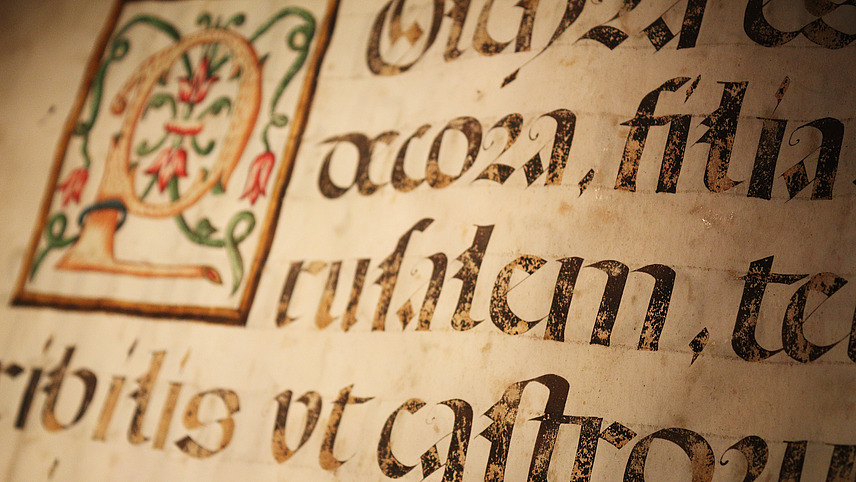 decora, filia
ruſalem, ter
ribilis vt caſtroru